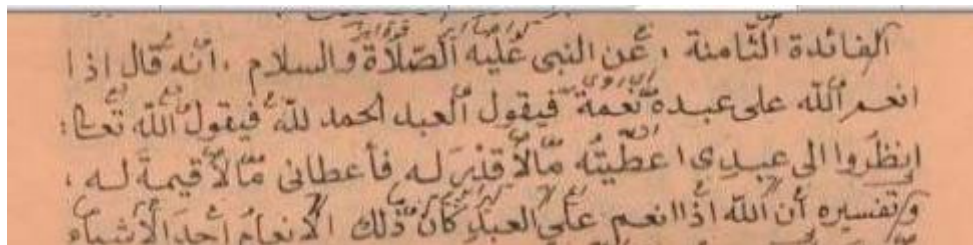 الفائدة الثامنة ، عن النبى عليه الصلاة والسلام ، أنه قال اذا
انعم الله على عبده نعمة فيقول العبد الحمد لله فيقول الله تعا :
انظروا الى عبدى اعطيته مالا قدر له فأعطانى مالا قيمة له ،
وتفسيره أن الله اذا انعم على العبد كان ذلك الانعام أحد الأشياء